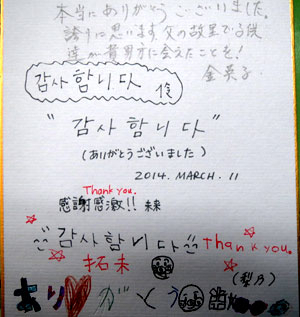 本当にありがとうございました。
誇りに思います。父の故里でる後
達が貴男方に会えたことを!
金英子
감사합니다
"감사합니다"
(ありがとうございました)
2014. MARCH. 11
Thank you.
感謝感激!! 未来
감사합니다 thank you.
拓未
(梨乃)
あり がとう